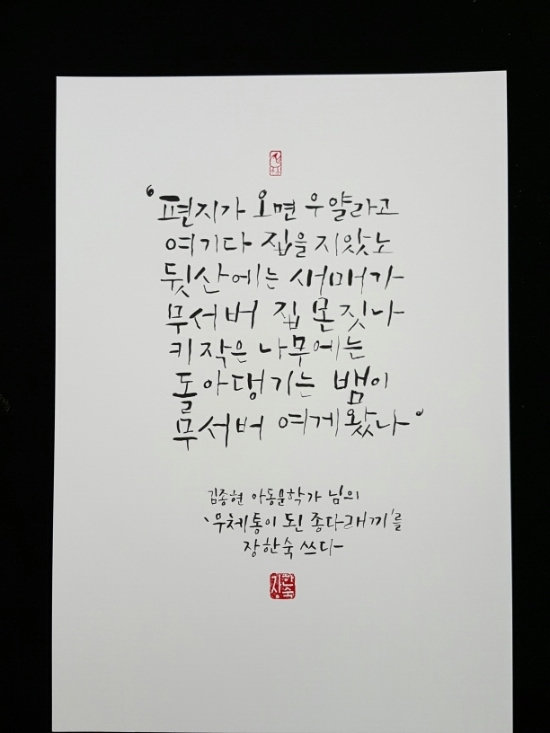 ‘편지가 오면 우얄라고
여기다 집을 지았노
뒷산에는 새매가
무서버 집 몬 짓나
키 작은 나무에는
돌아댕기는 뱀이
무서버 여게 왔나’
김종현 아동문학가 님의
‘우체통이 된 종다래끼’를
장한숙 쓰다
장한숙